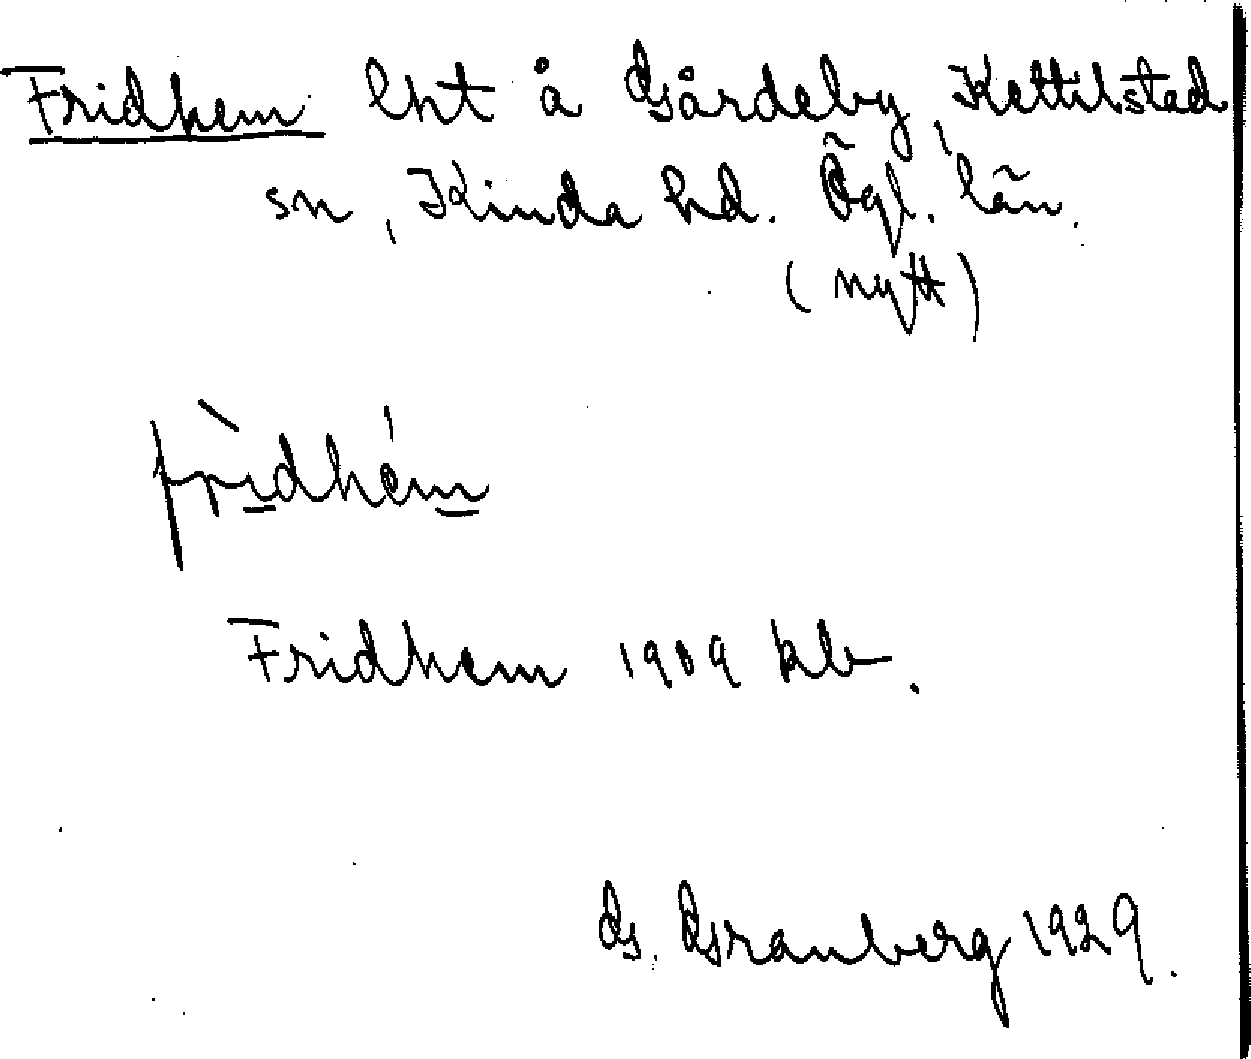 Fridhem lht å Gårdeby, Kettilstad
sn, Kinda hd. Ögl. län.
(nytt)
frìdhém
Fridhem 1909 kb.
G. Granberg 1929.